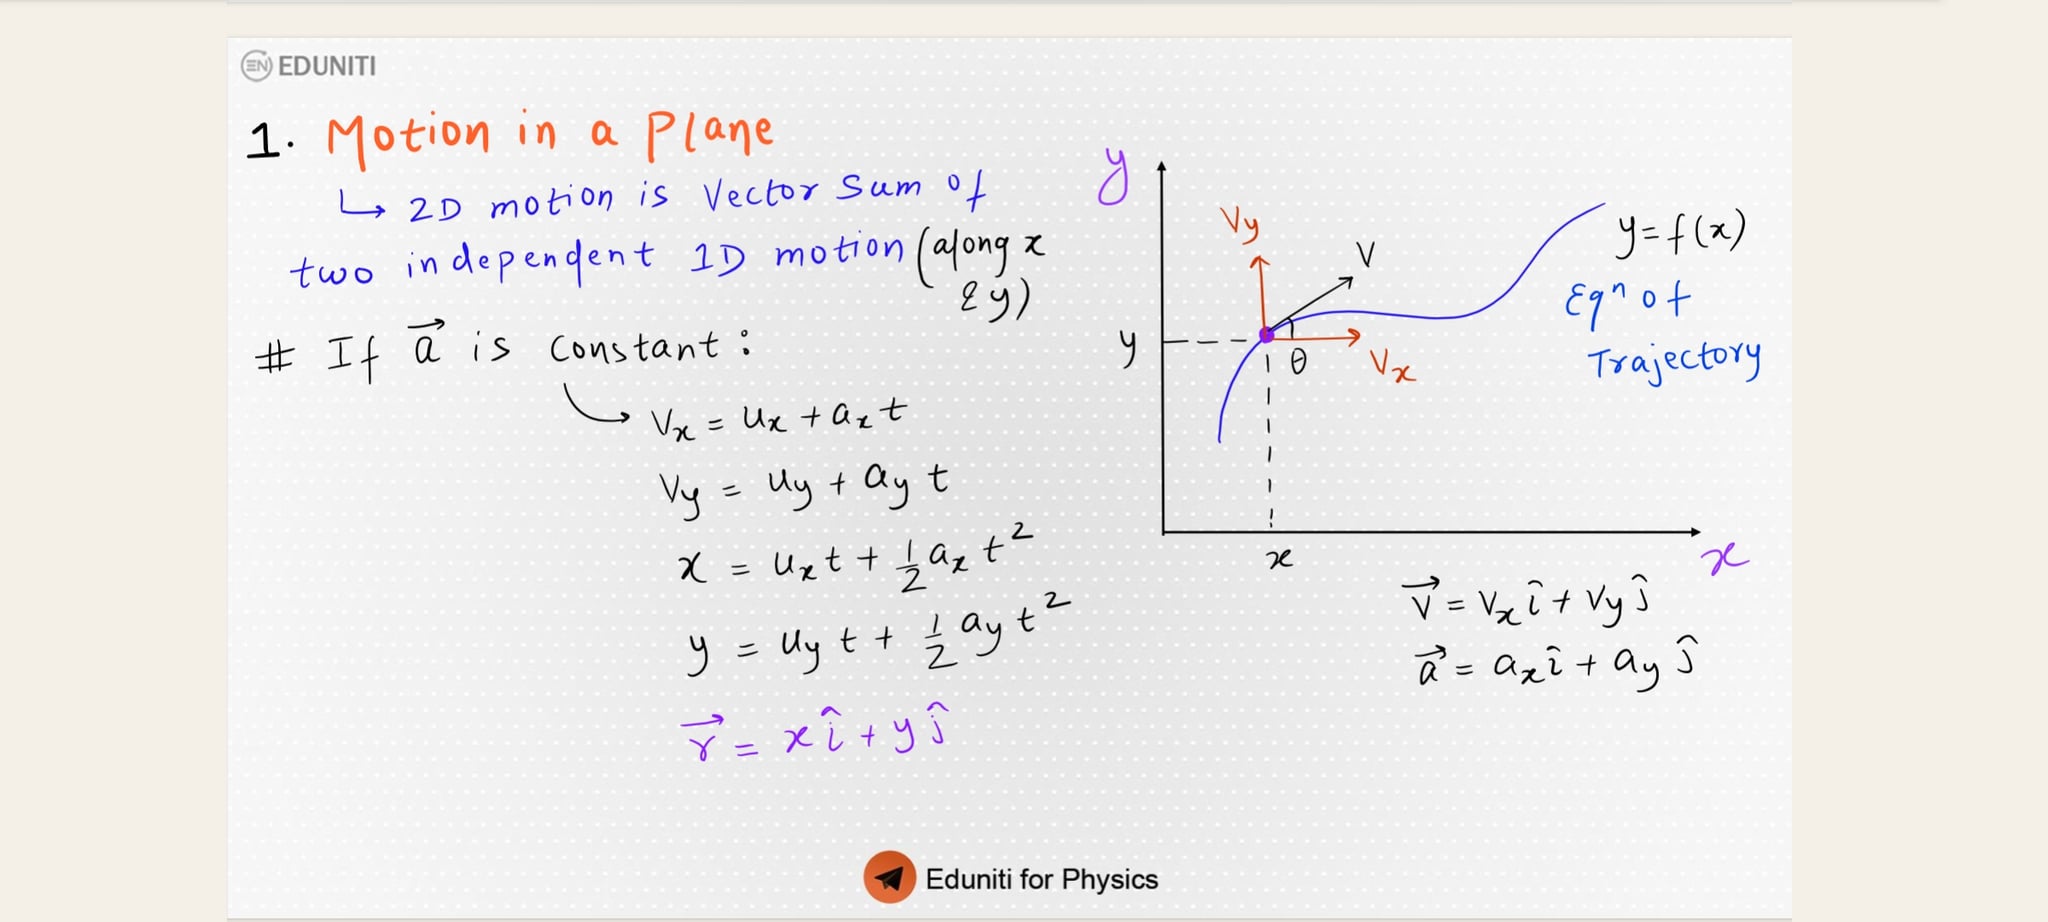 EN EDUNITI
1. Motion in a Plane
↳ 2D motion is Vector Sum of
two independent 1D motion (along x
& y)
# If a⃗ is constant :
Vx = ux + ax t
Vy = uy + ay t
x = ux t + 1/2 ax t²
y = uy t + 1/2 ay t²
r⃗ = x î + y ĵ
y
Vy
V
y = f(x)
Eqⁿ of
Trajectory
y
θ
Vx
x
x
V⃗ = Vx î + Vy ĵ
a⃗ = ax î + ay ĵ
Eduniti for Physics